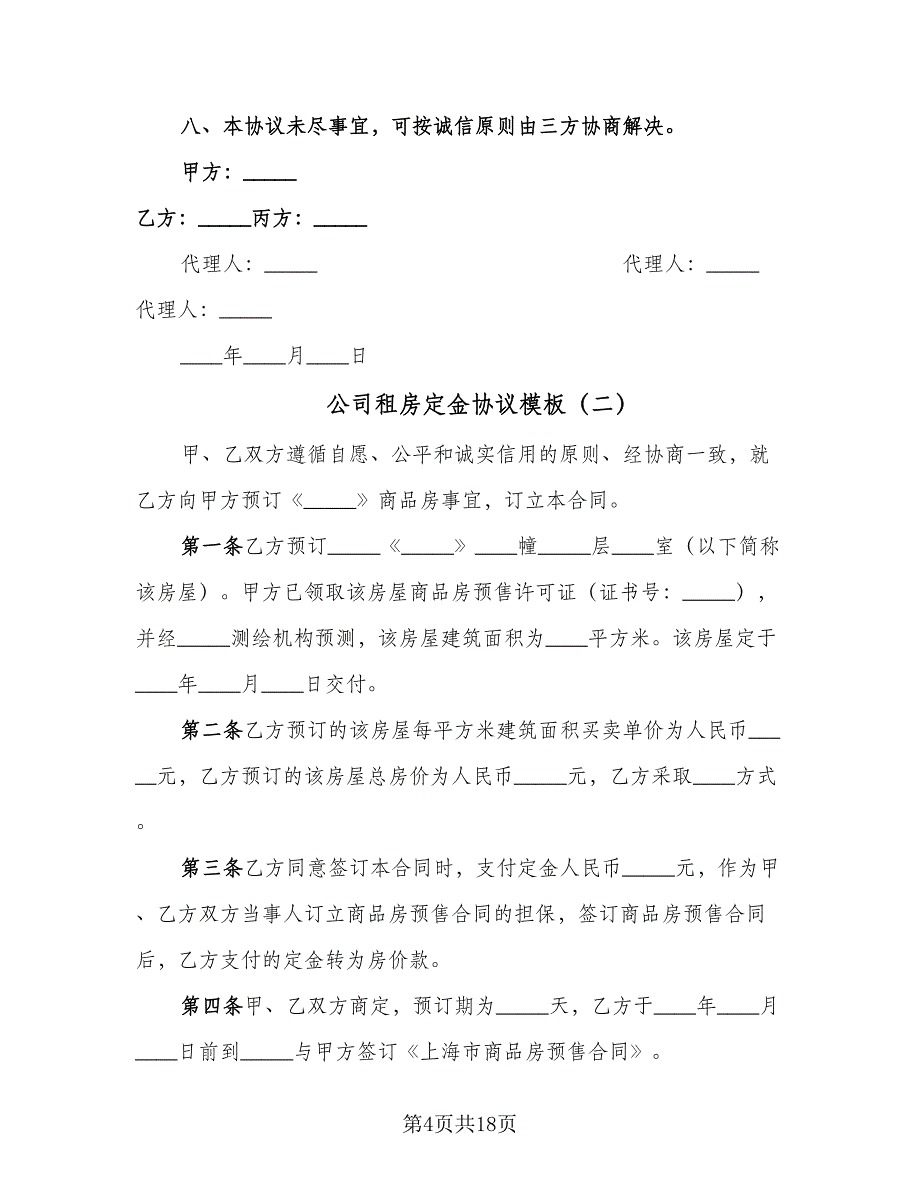 八、本协议未尽事宜，可按诚信原则由三方协商解决。
甲方：_____
乙方：_____丙方：_____
代理人：_____ 代理人：_____
代理人：_____
____年____月____日
公司租房定金协议模板（二）
甲、乙双方遵循自愿、公平和诚实信用的原则、经协商一致，就
乙方向甲方预订《_____》商品房事宜，订立本合同。
第一条乙方预订_____《_____》____幢_____层____室（以下简称
该房屋）。甲方已领取该房屋商品房预售许可证（证书号：_____），
并经_____测绘机构预测，该房屋建筑面积为____平方米。该房屋定于
____年____月____日交付。
第二条乙方预订的该房屋每平方米建筑面积买卖单价为人民币___
__元，乙方预订的该房屋总房价为人民币_____元，乙方采取____方式
。
第三条乙方同意签订本合同时，支付定金人民币_____元，作为甲
、乙方双方当事人订立商品房预售合同的担保，签订商品房预售合同
后，乙方支付的定金转为房价款。
第四条甲、乙双方商定，预订期为_____天，乙方于____年____月
____日前到_____与甲方签订《上海市商品房预售合同》。
第4页共18页